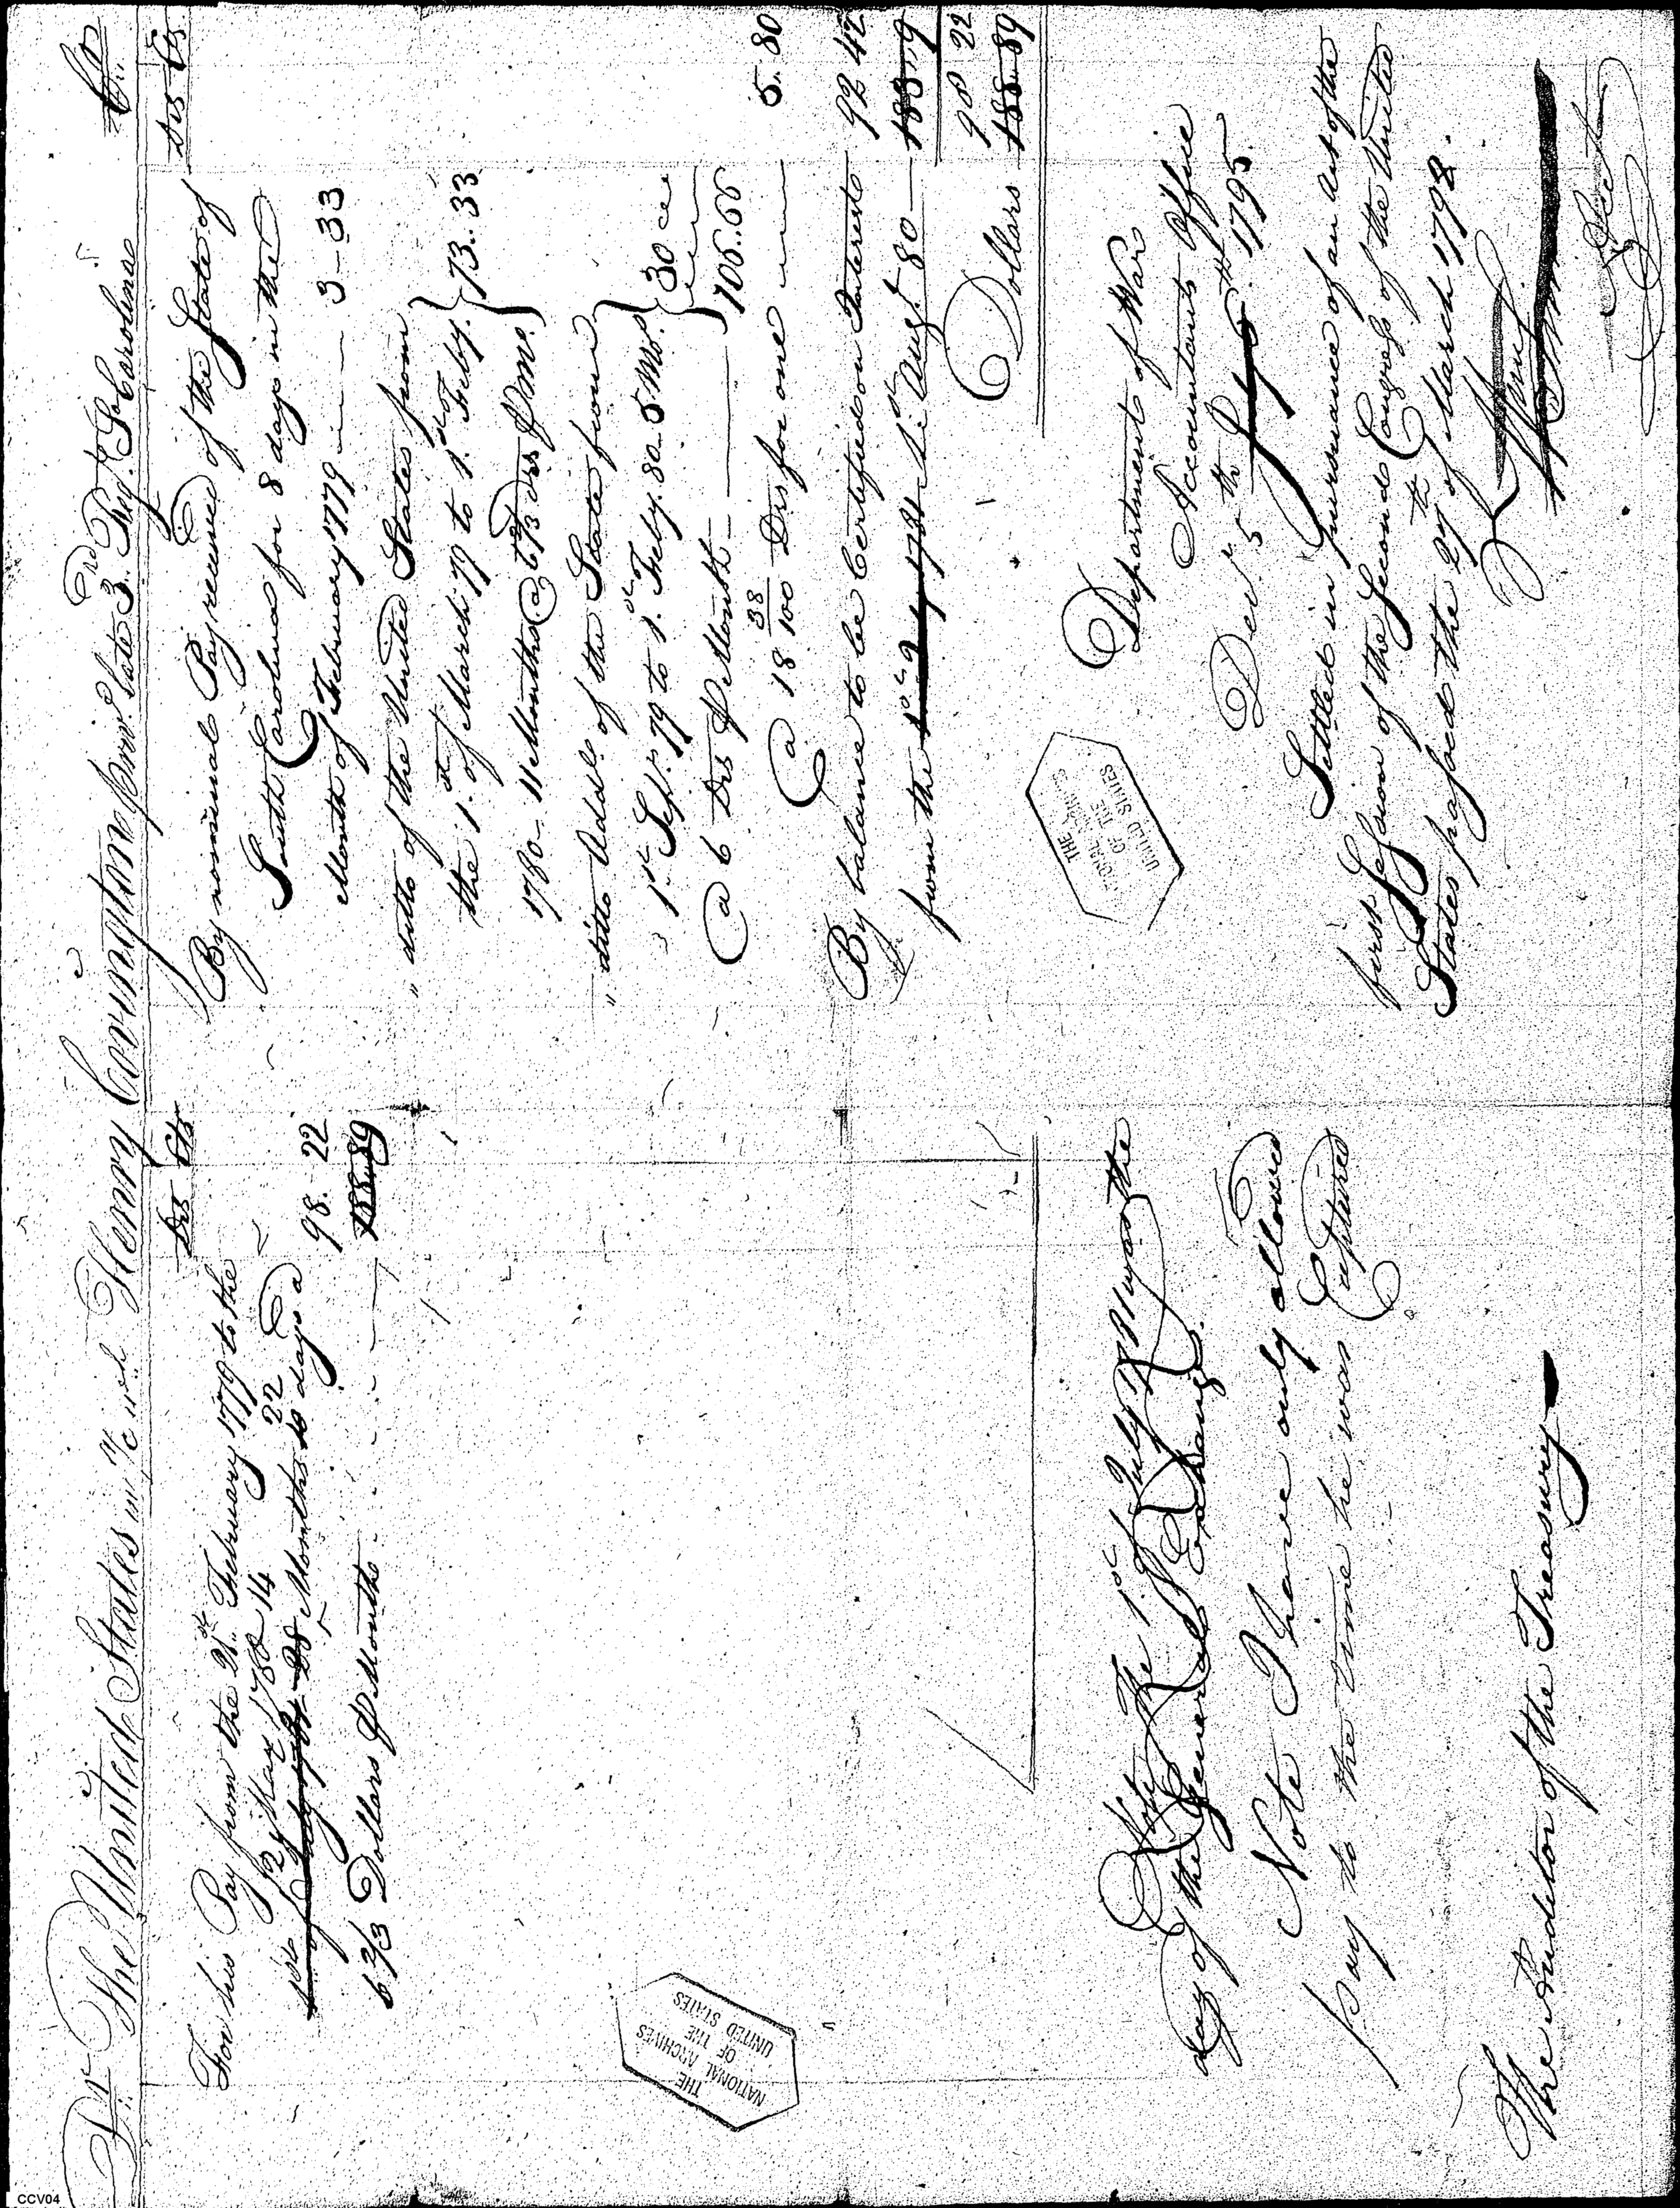 Dr. The United States in a/c with Henry Covington priv.t late 3.rd Reg.t So Carolina Cr.
Drs Cts
For his Pay from the 21.st February 1779 to the
12 of May 1780 14 22
1.st of July 28 Months 10 days a 98. 22
6 2/3 Dollars P Month 188..89
Note The 1.st of July was the
day of the General Exchange
Note I have only allowed
pay to the time he was Captured
The Auditor of the Treasury
Drs Cts
By nominal Pay received of the State of
South Carolina for 8 days in the
Month of February 1779 3-33
" ditto of the United States from
the 1.st of March 79 to 1.st Feby. 73..33
1780-11 Months @ 6 2/3 drs P Mo.
" ditto Addl. of the State from
1.st Sep.r 79 to 1.st Feby. 80-5 Mo.s 30
@ 6 Drs P Month 106..66
@ 18 38/100 Drs for one 5. 80
By balance to be Certified on Interest 92 42
from the 1.st Aug.t 80 183 09
98 22
Dollars 188..89
Department of War
Accountants Office
Dec.r 5th 1795.
Settled in pursuance of an Act of the
first Session of the Second Congress of the United
States passed the 27th of March 1792.
THE
NATIONAL ARCHIVES
OF THE
UNITED STATES
THE
NATIONAL ARCHIVES
OF THE
UNITED STATES
CCV04